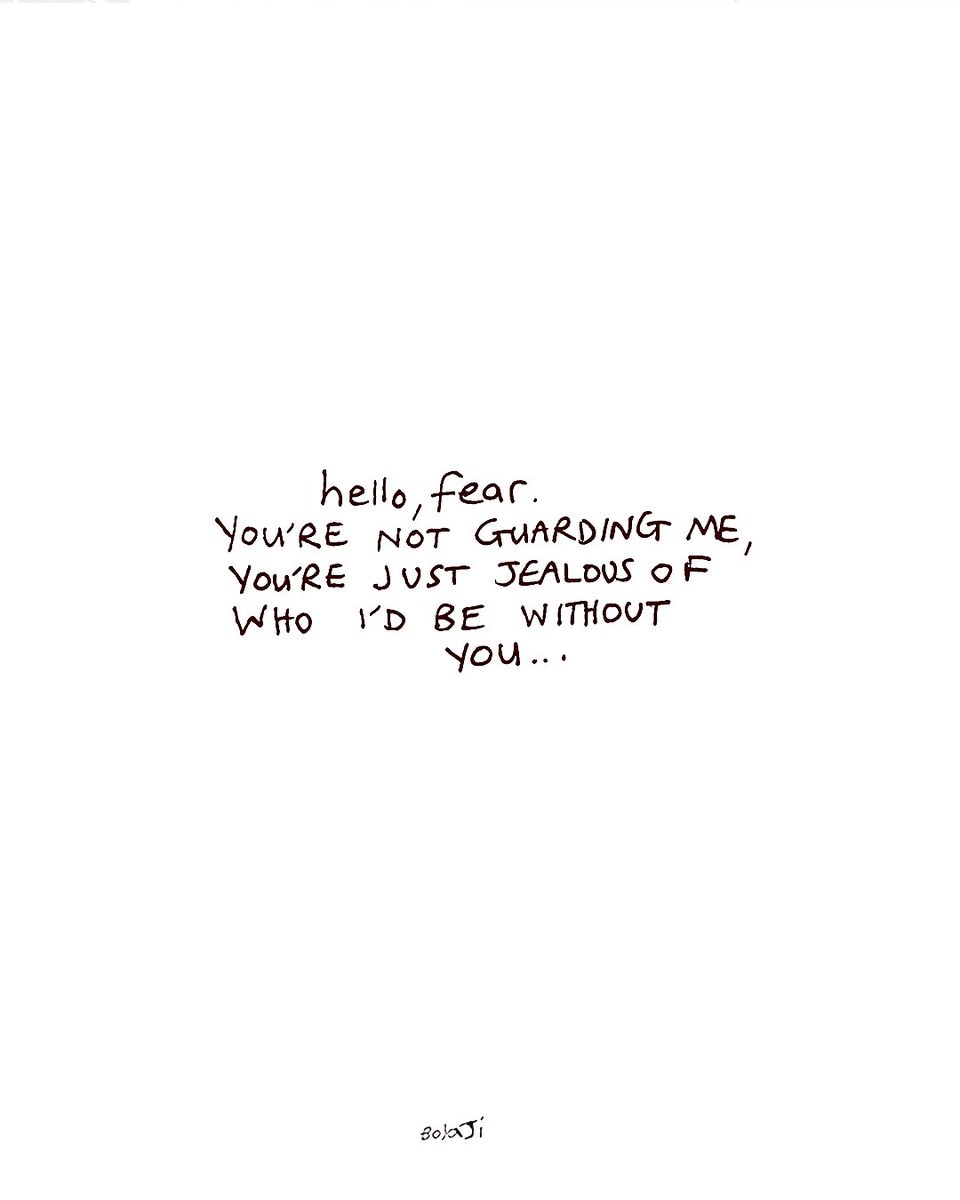 hello, fear.
YOU'RE NOT GUARDING ME,
YOU'RE JUST JEALOUS OF
WHO I'D BE WITHOUT
YOU...
BolaJi